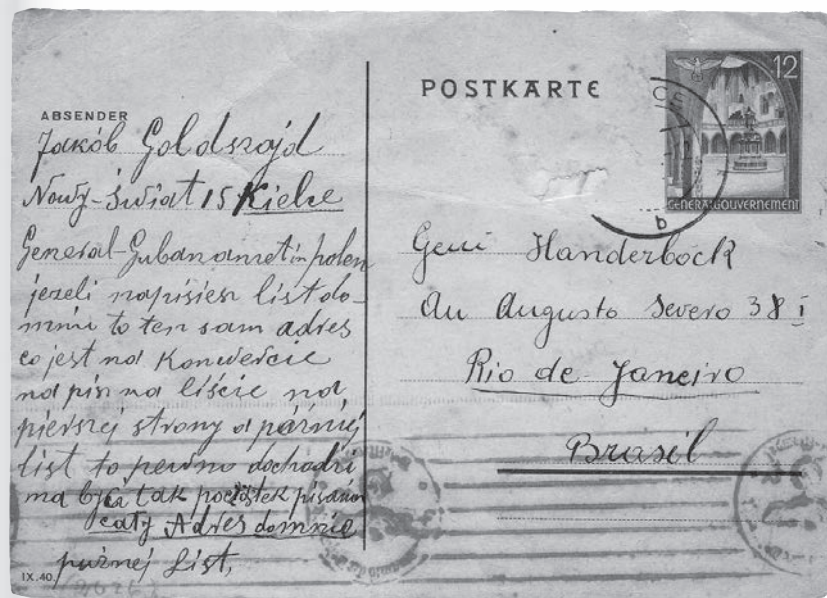 ABSENDER
Jakób Goldszajd
Nowy-Świat 15 Kielce
General-Gubanamet in polen
jezeli napisiesz list do-
mnie to ten sam adres
co jest na Konwercie
napisz na liście na
pierszej strony a pózniej
list to pewno dochodzi
ma być tak początek pisania
caty Adres domnie
puznej List,
IX.40.
POSTKARTE
12
GENERALGOUVERNEMENT
b
Geni Handerbock
Au Augusto Severo 38 I
Rio de Janeiro
Brasil